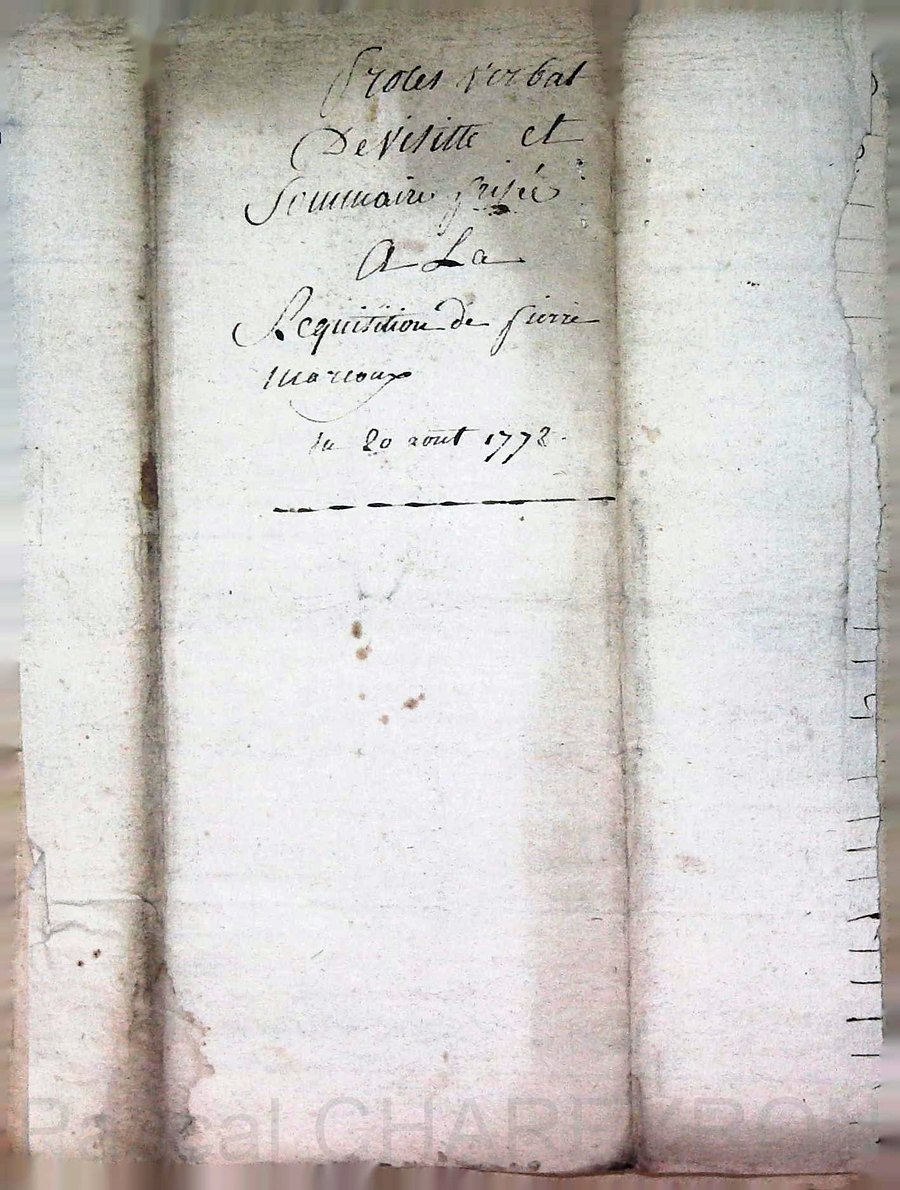 Proces verbal
De Visitte et
Sommaire prisée
A La
Requisition de pierre
Marcoux
du 20 aout 1772
Pascal CHAREYRON